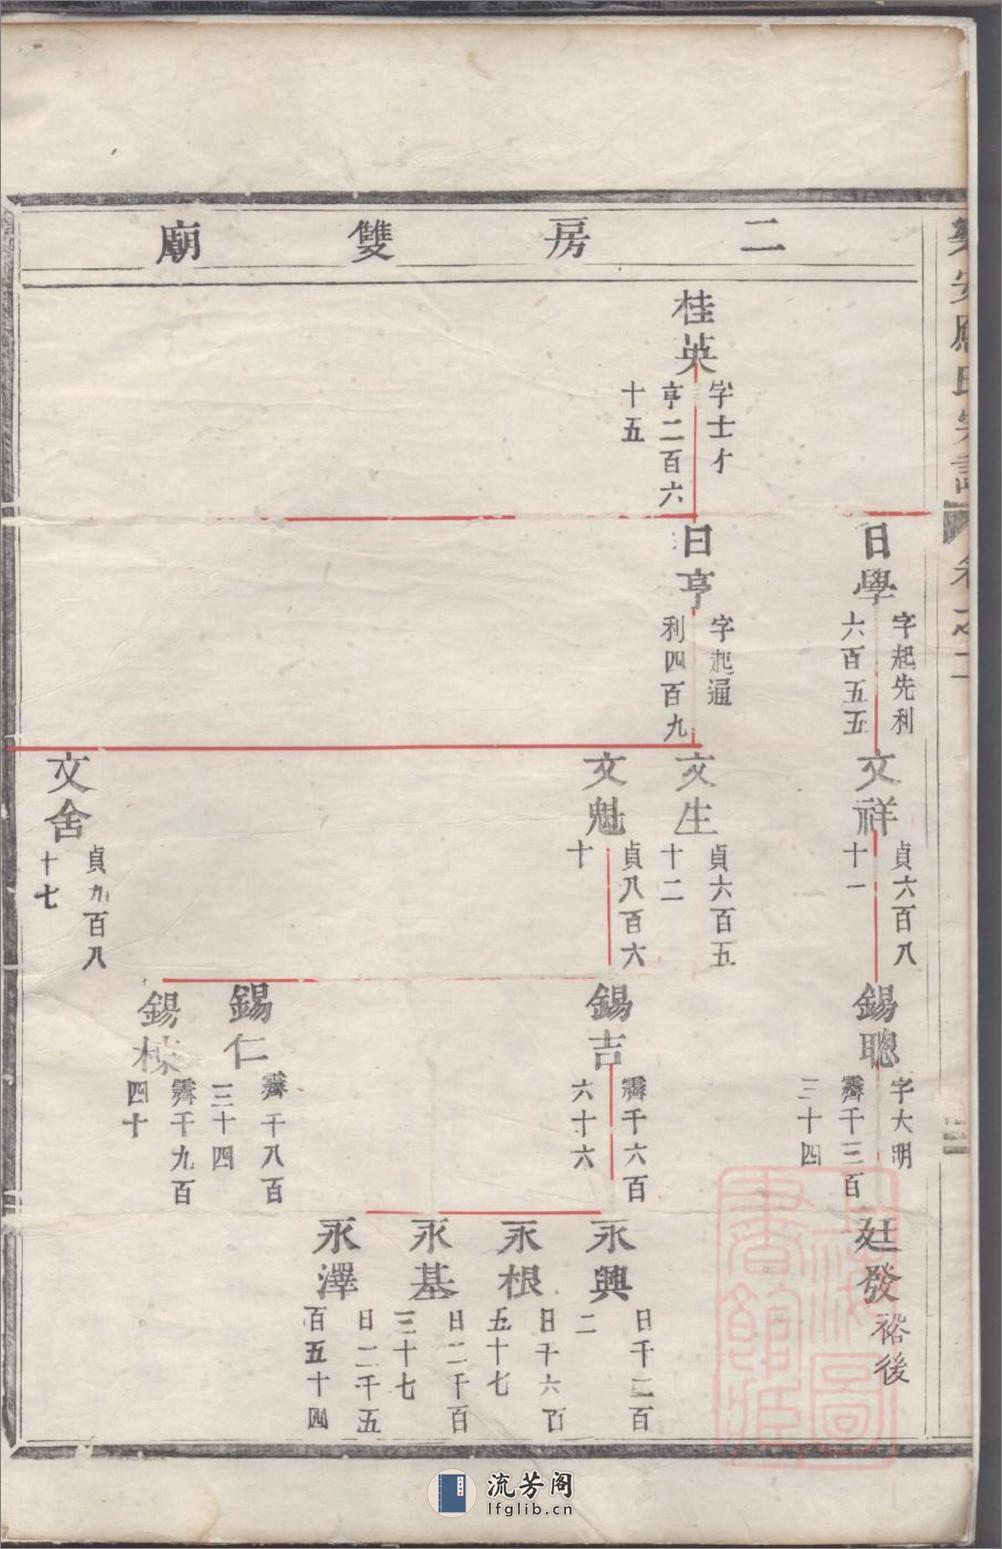 二房雙廟
桂英
字士才
亨二百六
十五
日學
字起先利
六百五五
日亨
字起通
利四百九
文祥
貞六百八
十一
文生
貞六百五
十二
文魁
貞八百六
十
文舍
貞九百八
十七
錫聰
字大明
霽千三百
三十四
錫吉
霽千六百
六十六
錫仁
霽千八百
三十四
錫棟
霽千九百
四十
廷發
裕後
永興
日千二百
二
永根
日千六百
五十七
永基
日二千百
三十七
永澤
日二千五
百五十四
上海圖
書館藏
流芳阁
lfglib.cn